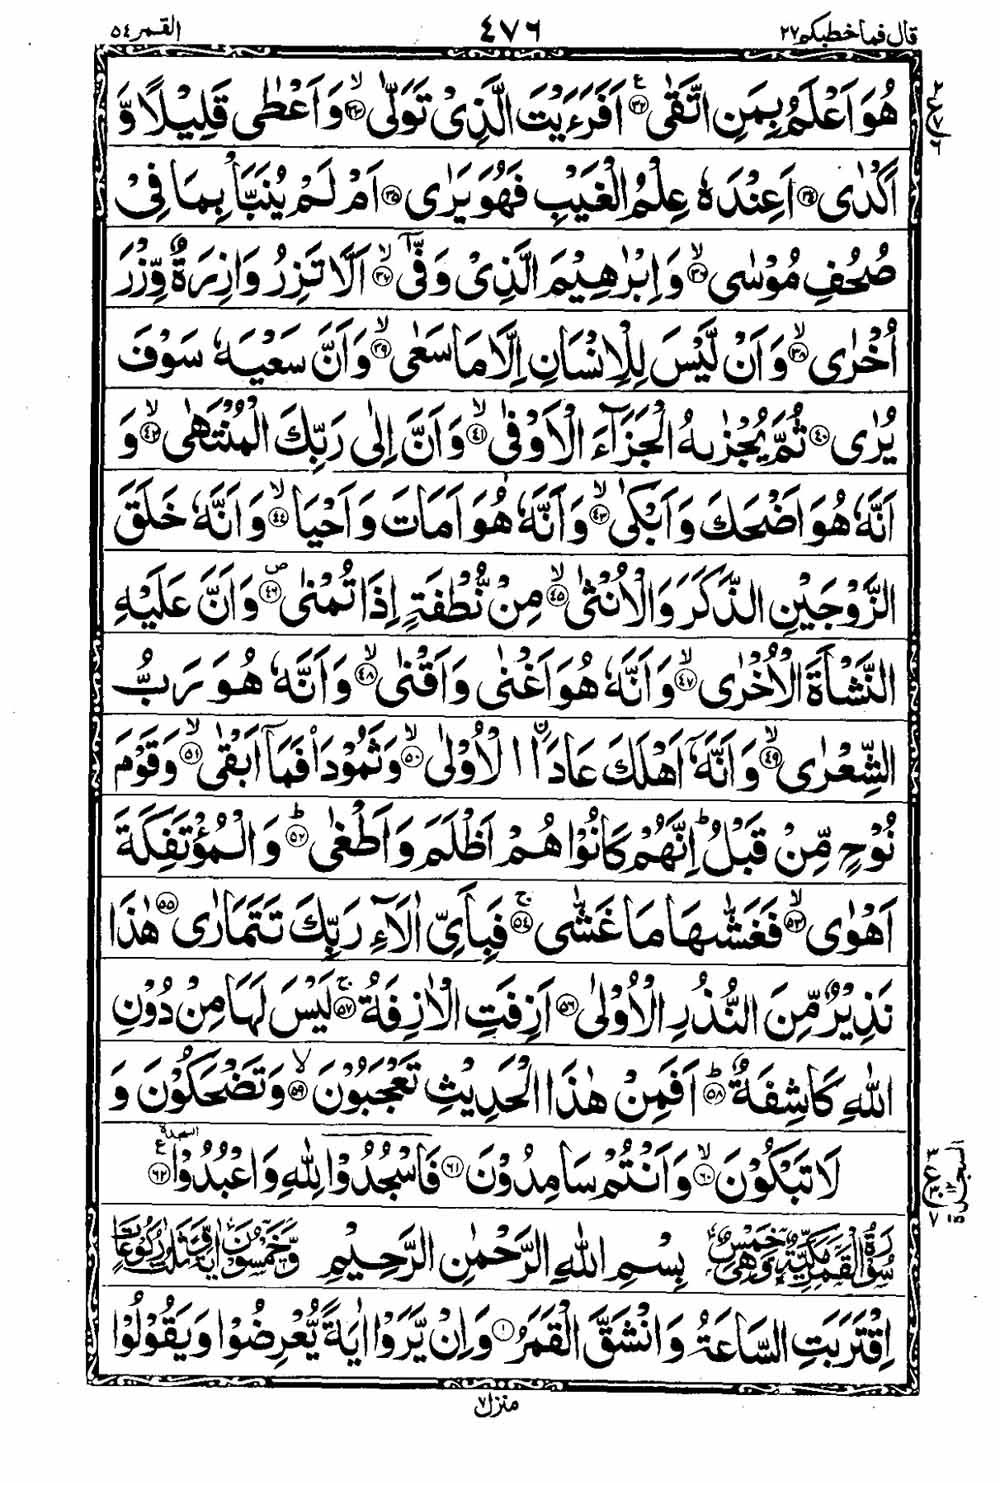 قال فما خطبكم ٢٧ ٤٧٦ القمر ٥٤
هُوَ اَعْلَمُ بِمَنِ اتَّقٰى ۟ع ﴿٣٢﴾ اَفَرَءَيْتَ الَّذِىْ تَوَلّٰى ۙ﴿٣٣﴾ وَ اَعْطٰى قَلِيْلًا وَّ
اَكْدٰى ﴿٣٤﴾ اَعِنْدَهٗ عِلْمُ الْغَيْبِ فَهُوَ يَرٰى ﴿٣٥﴾ اَمْ لَمْ يُنَبَّاْ بِمَا فِىْ
صُحُفِ مُوْسٰى ۙ﴿٣٦﴾ وَ اِبْرٰهِيْمَ الَّذِىْ وَفّٰىٓ ۙ﴿٣٧﴾ اَلَّا تَزِرُ وَازِرَةٌ وِّزْرَ
اُخْرٰى ۙ﴿٣٨﴾ وَ اَنْ لَّيْسَ لِلْاِنْسَانِ اِلَّا مَا سَعٰى ۙ﴿٣٩﴾ وَ اَنَّ سَعْيَهٗ سَوْفَ
يُرٰى ﴿٤٠﴾ ثُمَّ يُجْزٰىهُ الْجَزَآءَ الْاَوْفٰى ۙ﴿٤١﴾ وَ اَنَّ اِلٰى رَبِّكَ الْمُنْتَهٰى ۙ﴿٤٢﴾ وَ
اَنَّهٗ هُوَ اَضْحَكَ وَ اَبْكٰى ۙ﴿٤٣﴾ وَ اَنَّهٗ هُوَ اَمَاتَ وَ اَحْيَا ۙ﴿٤٤﴾ وَ اَنَّهٗ خَلَقَ
الزَّوْجَيْنِ الذَّكَرَ وَ الْاُنْثٰى ۙ﴿٤٥﴾ مِنْ نُّطْفَةٍ اِذَا تُمْنٰى ۪﴿٤٦﴾ وَ اَنَّ عَلَيْهِ
النَّشْاَةَ الْاُخْرٰى ۙ﴿٤٧﴾ وَ اَنَّهٗ هُوَ اَغْنٰى وَ اَقْنٰى ۙ﴿٤٨﴾ وَ اَنَّهٗ هُوَ رَبُّ
الشِّعْرٰى ۙ﴿٤٩﴾ وَ اَنَّهٗٓ اَهْلَكَ عَادَا۟ اۨلْاُوْلٰى ۙ﴿٥٠﴾ وَ ثَمُوْدَا۟ فَمَآ اَبْقٰى ۙ﴿٥١﴾ وَ قَوْمَ
نُوْحٍ مِّنْ قَبْلُ ؕ اِنَّهُمْ كَانُوْا هُمْ اَظْلَمَ وَ اَطْغٰى ؕ﴿٥٢﴾ وَ الْمُؤْتَفِكَةَ
اَهْوٰى ۙ﴿٥٣﴾ فَغَشّٰىهَا مَا غَشّٰى ۚ﴿٥٤﴾ فَبِاَىِّ اٰلَآءِ رَبِّكَ تَتَمَارٰى ﴿٥٥﴾ هٰذَا
نَذِيْرٌ مِّنَ النُّذُرِ الْاُوْلٰى ﴿٥٦﴾ اَزِفَتِ الْاٰزِفَةُ ۚ﴿٥٧﴾ لَيْسَ لَهَا مِنْ دُوْنِ
اللّٰهِ كَاشِفَةٌ ؕ﴿٥٨﴾ اَفَمِنْ هٰذَا الْحَدِيْثِ تَعْجَبُوْنَ ۙ﴿٥٩﴾ وَ تَضْحَكُوْنَ وَ
لَا تَبْكُوْنَ ۙ﴿٦٠﴾ وَ اَنْتُمْ سَامِدُوْنَ ﴿٦١﴾ فَاسْجُدُوْا لِلّٰهِ وَ اعْبُدُوْا ۟ع السجدة ﴿٦٢﴾
سُوْرَةُ الْقَمَرِ مَكِّيَّةٌ وَّهِىَ خَمْسٌ بِسْمِ اللّٰهِ الرَّحْمٰنِ الرَّحِيْمِ وَّخَمْسُوْنَ اٰيَةً وَّثَلٰثُ رُكُوْعَاتٍ
اِقْتَرَبَتِ السَّاعَةُ وَ انْشَقَّ الْقَمَرُ ﴿١﴾ وَ اِنْ يَّرَوْا اٰيَةً يُّعْرِضُوْا وَ يَقُوْلُوْا
منزل ٧